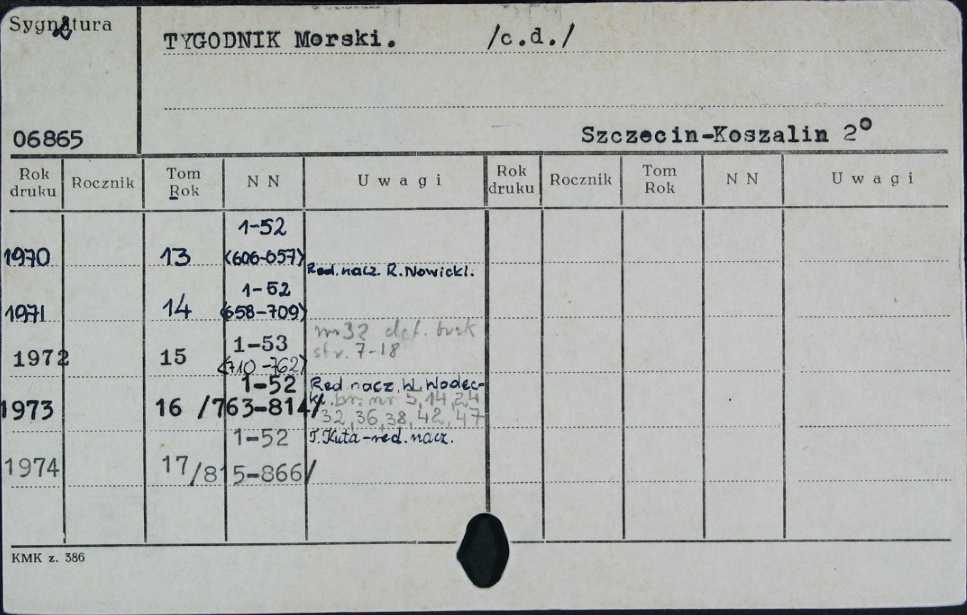 Sygnatura
TYGODNIK Morski. /c.d./
06865
Szczecin-Koszalin 2°
Rok druku Rocznik Tom Rok N N U w a g i Rok druku Rocznik Tom Rok N N U w a g i
1-52
1970 13 (606-657)
Red. nacz. R. Nowicki.
1-52
1971 14 (658-709)
nr 32 def. brak
1972 15 1-53 str. 7-18
(710-762)
1-52 Red nacz. Wł. Wodec-
1973 16 /763-814/ ki. br. nr 5, 14, 24
32, 36, 38, 42, 47
1-52 T. Kuta-red. nacz.
1974 17 /815-866/
KMK z. 386